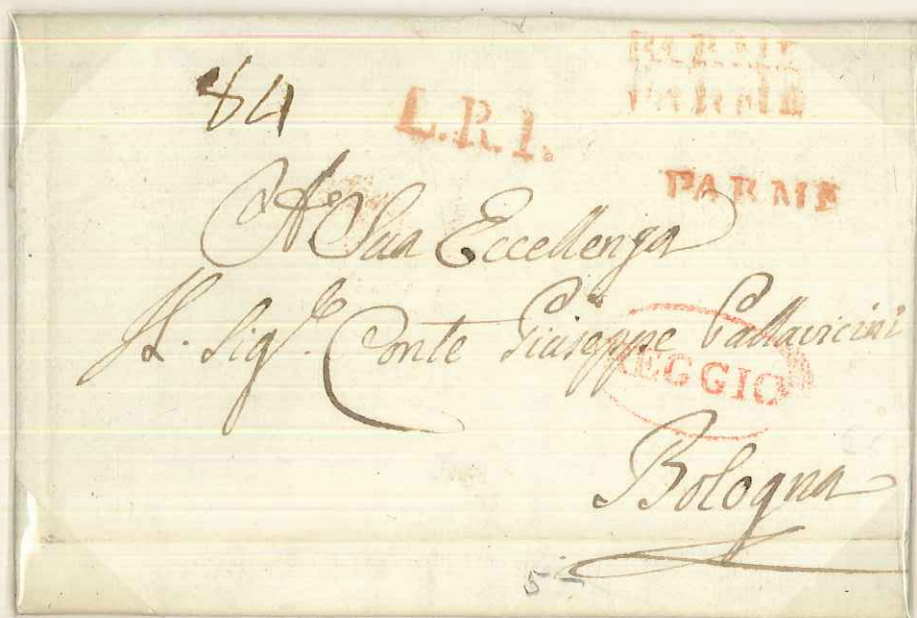 84
L.R.I.
PARME
PARME
PARME
A Sua Eccellenza
Il. Sig.re Conte Giuseppe Pallavicini
REGGIO
Bologna
5